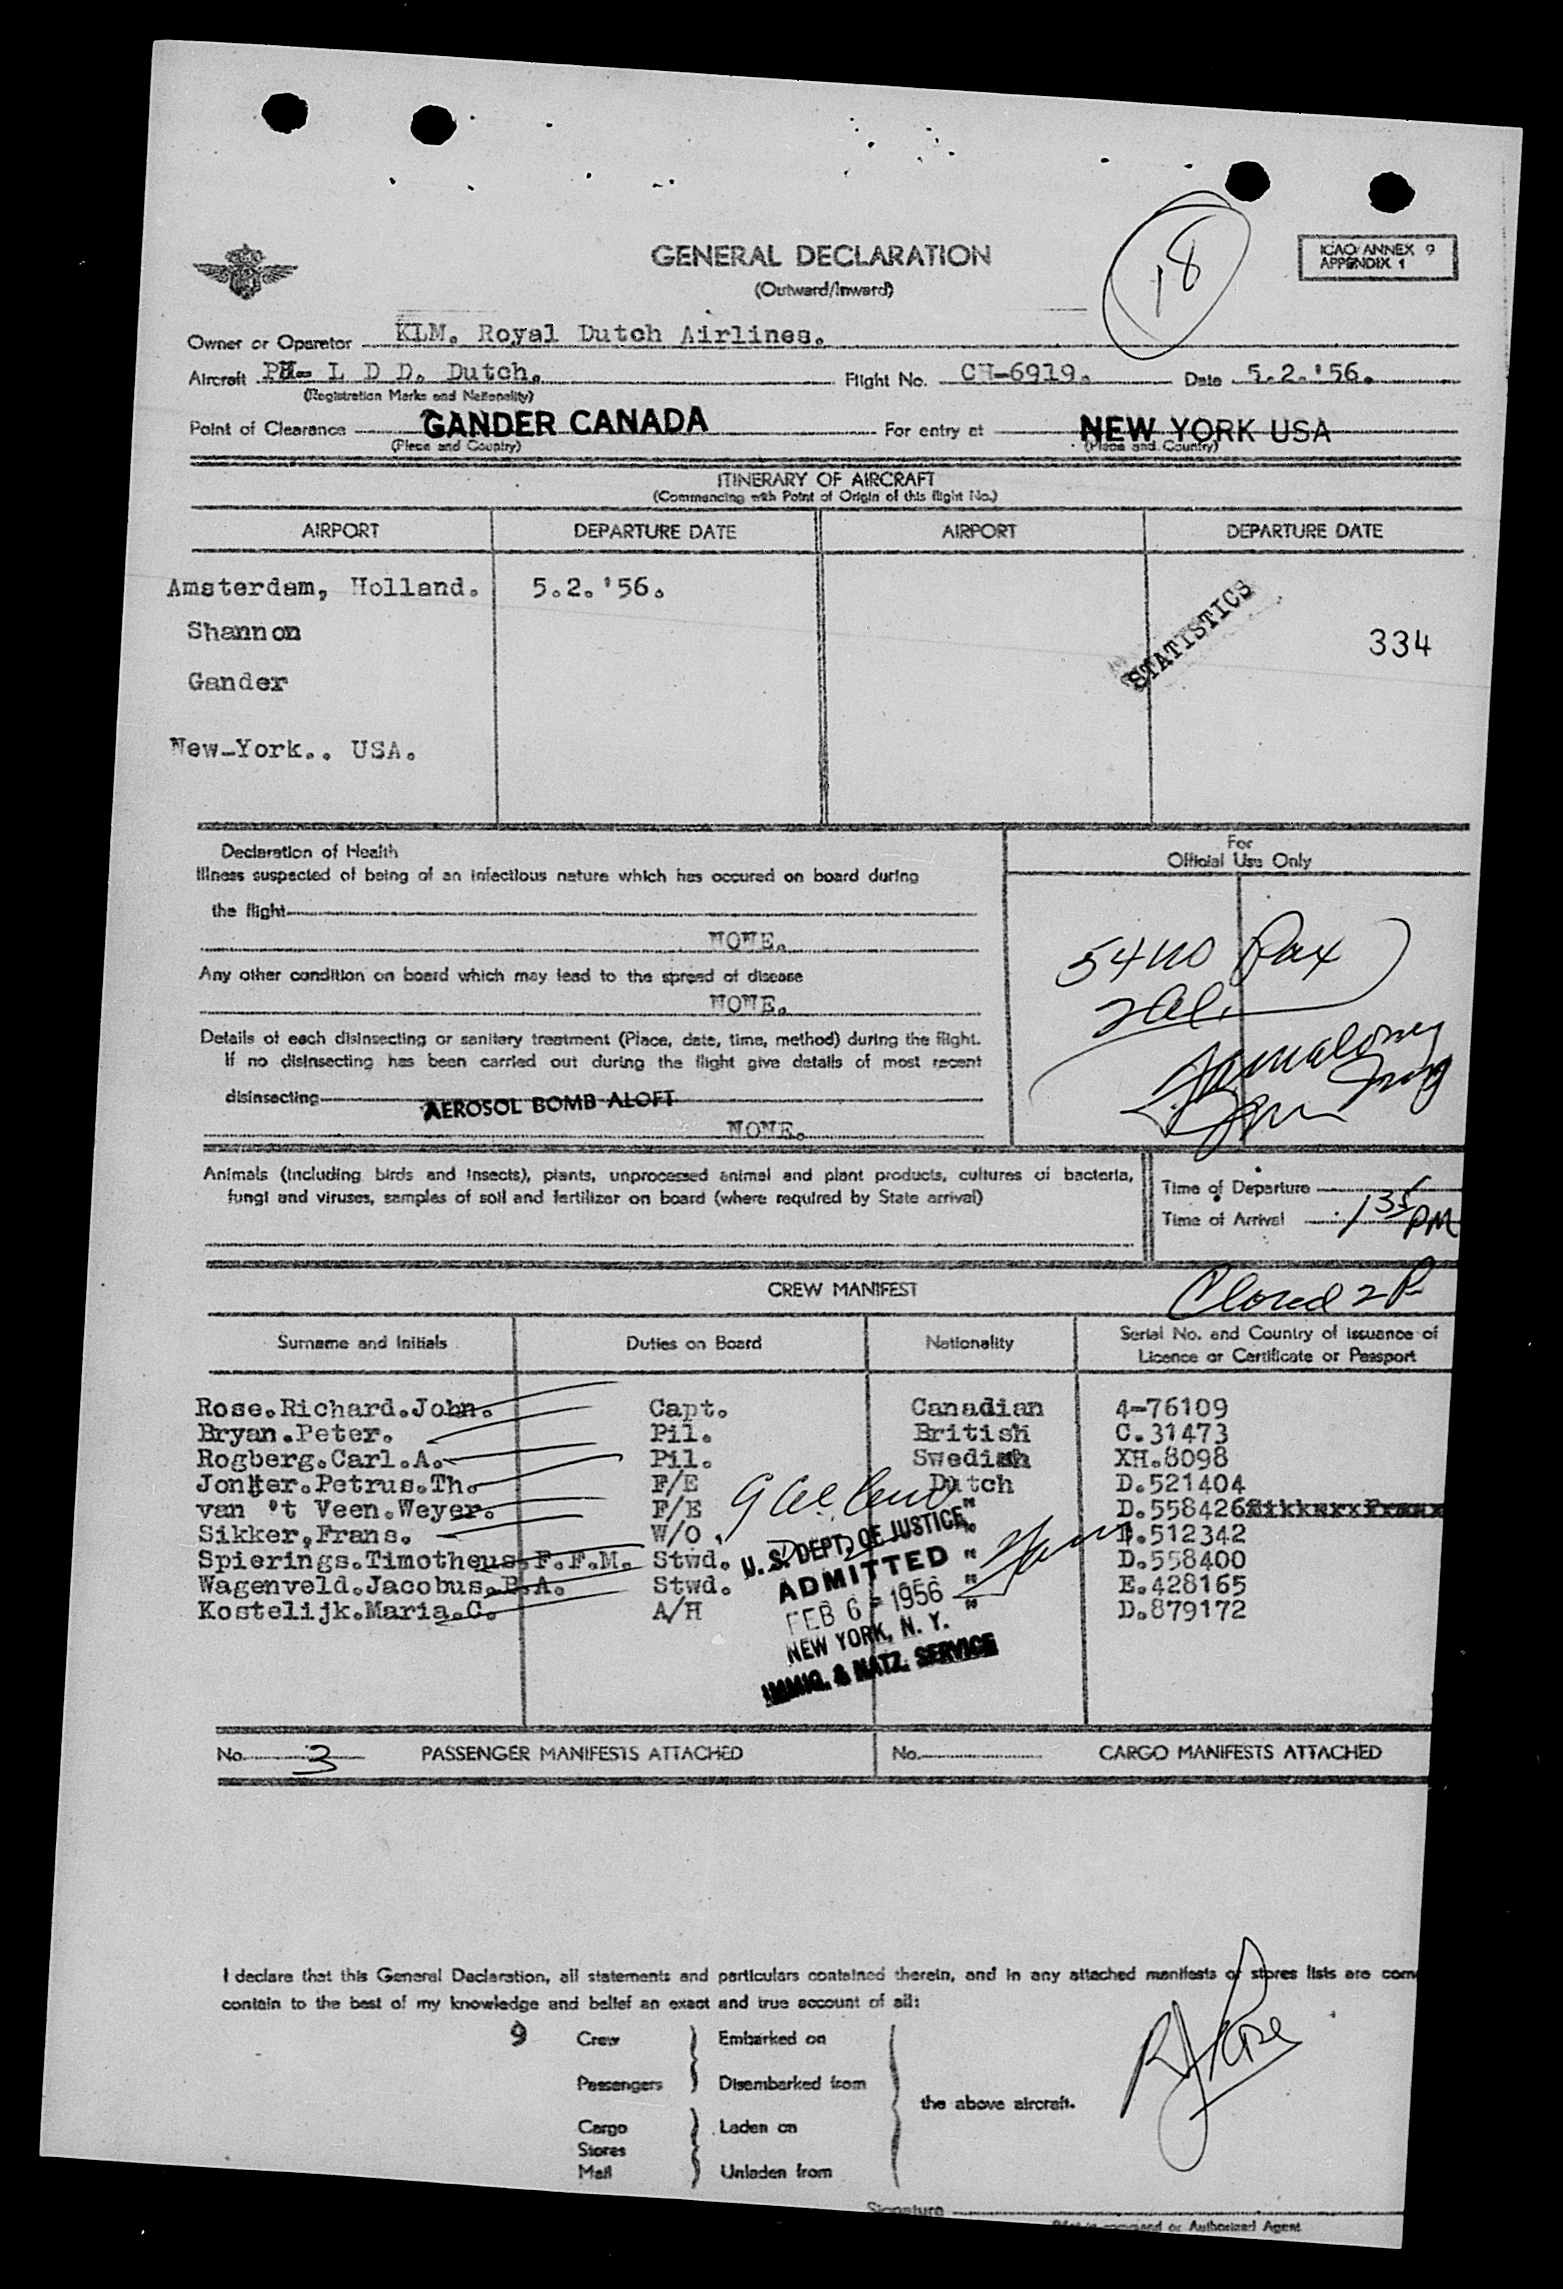 18
ICAO ANNEX 9
APPENDIX 1
GENERAL DECLARATION
(Outward/Inward)
Owner or Operator KLM. Royal Dutch Airlines.
Aircraft PH- L D D. Dutch. Flight No. CH-6919. Date 5.2.'56.
(Registration Marks and Nationality)
Point of Clearance GANDER CANADA For entry at NEW YORK USA
(Place and Country) (Place and Country)
ITINERARY OF AIRCRAFT
(Commencing with Point of Origin of this flight No.)
AIRPORT DEPARTURE DATE AIRPORT DEPARTURE DATE
Amsterdam, Holland. 5.2.'56.
STATISTICS
Shannon 334
Gander
New-York.. USA.
Declaration of Health
Illness suspected of being of an infectious nature which has occured on board during
the flight
NONE.
Any other condition on board which may lead to the spread of disease
NONE.
Details of each disinsecting or sanitary treatment (Place, date, time, method) during the flight.
If no disinsecting has been carried out during the flight give details of most recent
disinsecting AEROSOL BOMB ALOFT
NONE.
For
Official Use Only
54 Pax
Animals (including birds and insects), plants, unprocessed animal and plant products, cultures of bacteria,
fungi and viruses, samples of soil and fertilizer on board (where required by State arrival)
Time of Departure
Time of Arrival 1 35 PM
CREW MANIFEST
Closed 2 P
Surname and Initials Duties on Board Nationality Serial No. and Country of issuance of
Licence or Certificate or Passport
Rose.Richard.John. Capt. Canadian 4-76109
Bryan.Peter. Pil. British C.31473
Rogberg.Carl.A. Pil. Swedish XH.8098
Jonker.Petrus.Th. F/E Dutch D.521404
van 't Veen.Weyer. F/E " D.558426
Sikker,Frans. W/O " D.512342
Spierings.Timotheus.F.F.M. Stwd. " D.558400
Wagenveld.Jacobus.P.A. Stwd. " E.428165
Kostelijk.Maria.C. A/H " D.879172
U.S. DEPT. OF JUSTICE
ADMITTED
FEB 6 - 1956
NEW YORK, N. Y.
IMMIG. & NATZ. SERVICE
No. 3 PASSENGER MANIFESTS ATTACHED No. CARGO MANIFESTS ATTACHED
I declare that this General Declaration, all statements and particulars contained therein, and in any attached manifests or stores lists are com
contain to the best of my knowledge and belief an exact and true account of all:
9 Crew Embarked on
Passengers Disembarked from
the above aircraft.
Cargo Laden on
Stores
Mail Unladen from
RJ Rose
Signature
Pilot in command or Authorized Agent